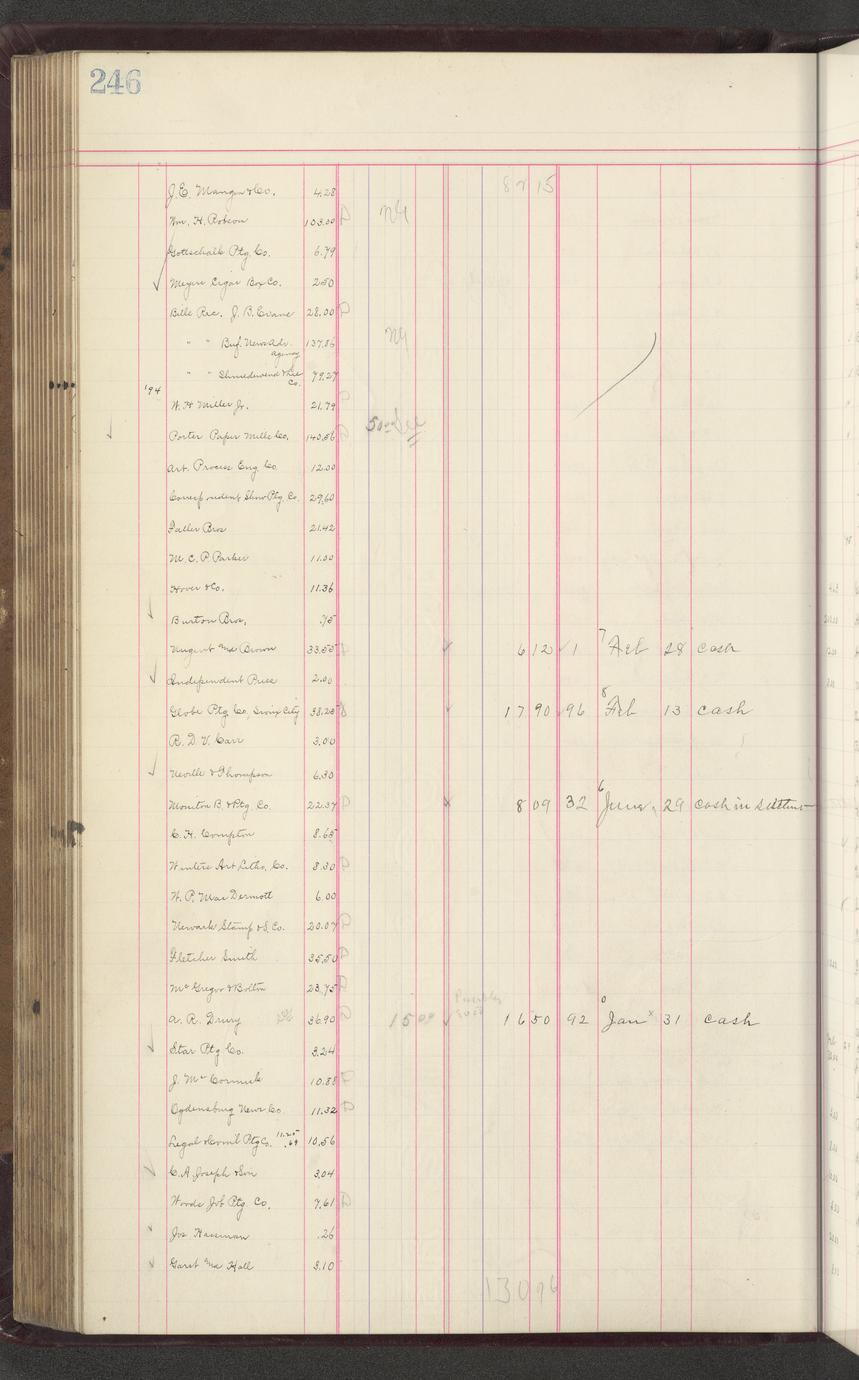 246
87 15
J. E. Mangan & Co. 4.28
Wm. H. Robson 103.00
Gottschalk Ptg. Co. 6.79
Meyers Cigar Box Co. 2.50
Bills Rec. J. B. Evans 28.00
" " Buf. News Adv. agency 137.86
" " Co. 79.27
'94
W. H. Miller Jr. 21.79
Porter Paper Mills Co. 140.56
Art. Process Eng. Co. 12.00
Correspondent Show Ptg. Co. 29.60
Faller Bros 21.42
M. C. P. Parker 11.00
Hover & Co. 11.36
Burton Bros. .75
Nugent Mc Brown 33.55 6 12 1 7 Feb 28 cash
Independent Press 2.00
Globe Ptg. Co, Sioux City 38.28 17 90 96 8 Feb 13 cash
R. D. V. Carr 3.00
Neville & Thompson 6.30
Monitor B. & Ptg. Co. 22.37 8 09 32 6 June 29 cash in
C. H. Compton 8.65
Winters Art Litho. Co. 8.30
W. P. Mac Dermott 6.00
Newark Stamp & S. Co. 20.07
Fletcher Smith 35.50
Mc Gregor & Bolton 23.75
A. R. Drury 36.90 15 00 Possibly good 16 50 92 0 Jan x 31 cash
Star Ptg. Co. 3.24
J. Mc Cormick 10.88
Ogdensburg News Co. 11.32
Legal & Coml Ptg Co. 11.25 .69 10.56
C. A. Joseph & Son 3.04
Woods Job Ptg. Co. 7.61
Jos Hassman .26
Garst Mc Hall 3.10
130 96